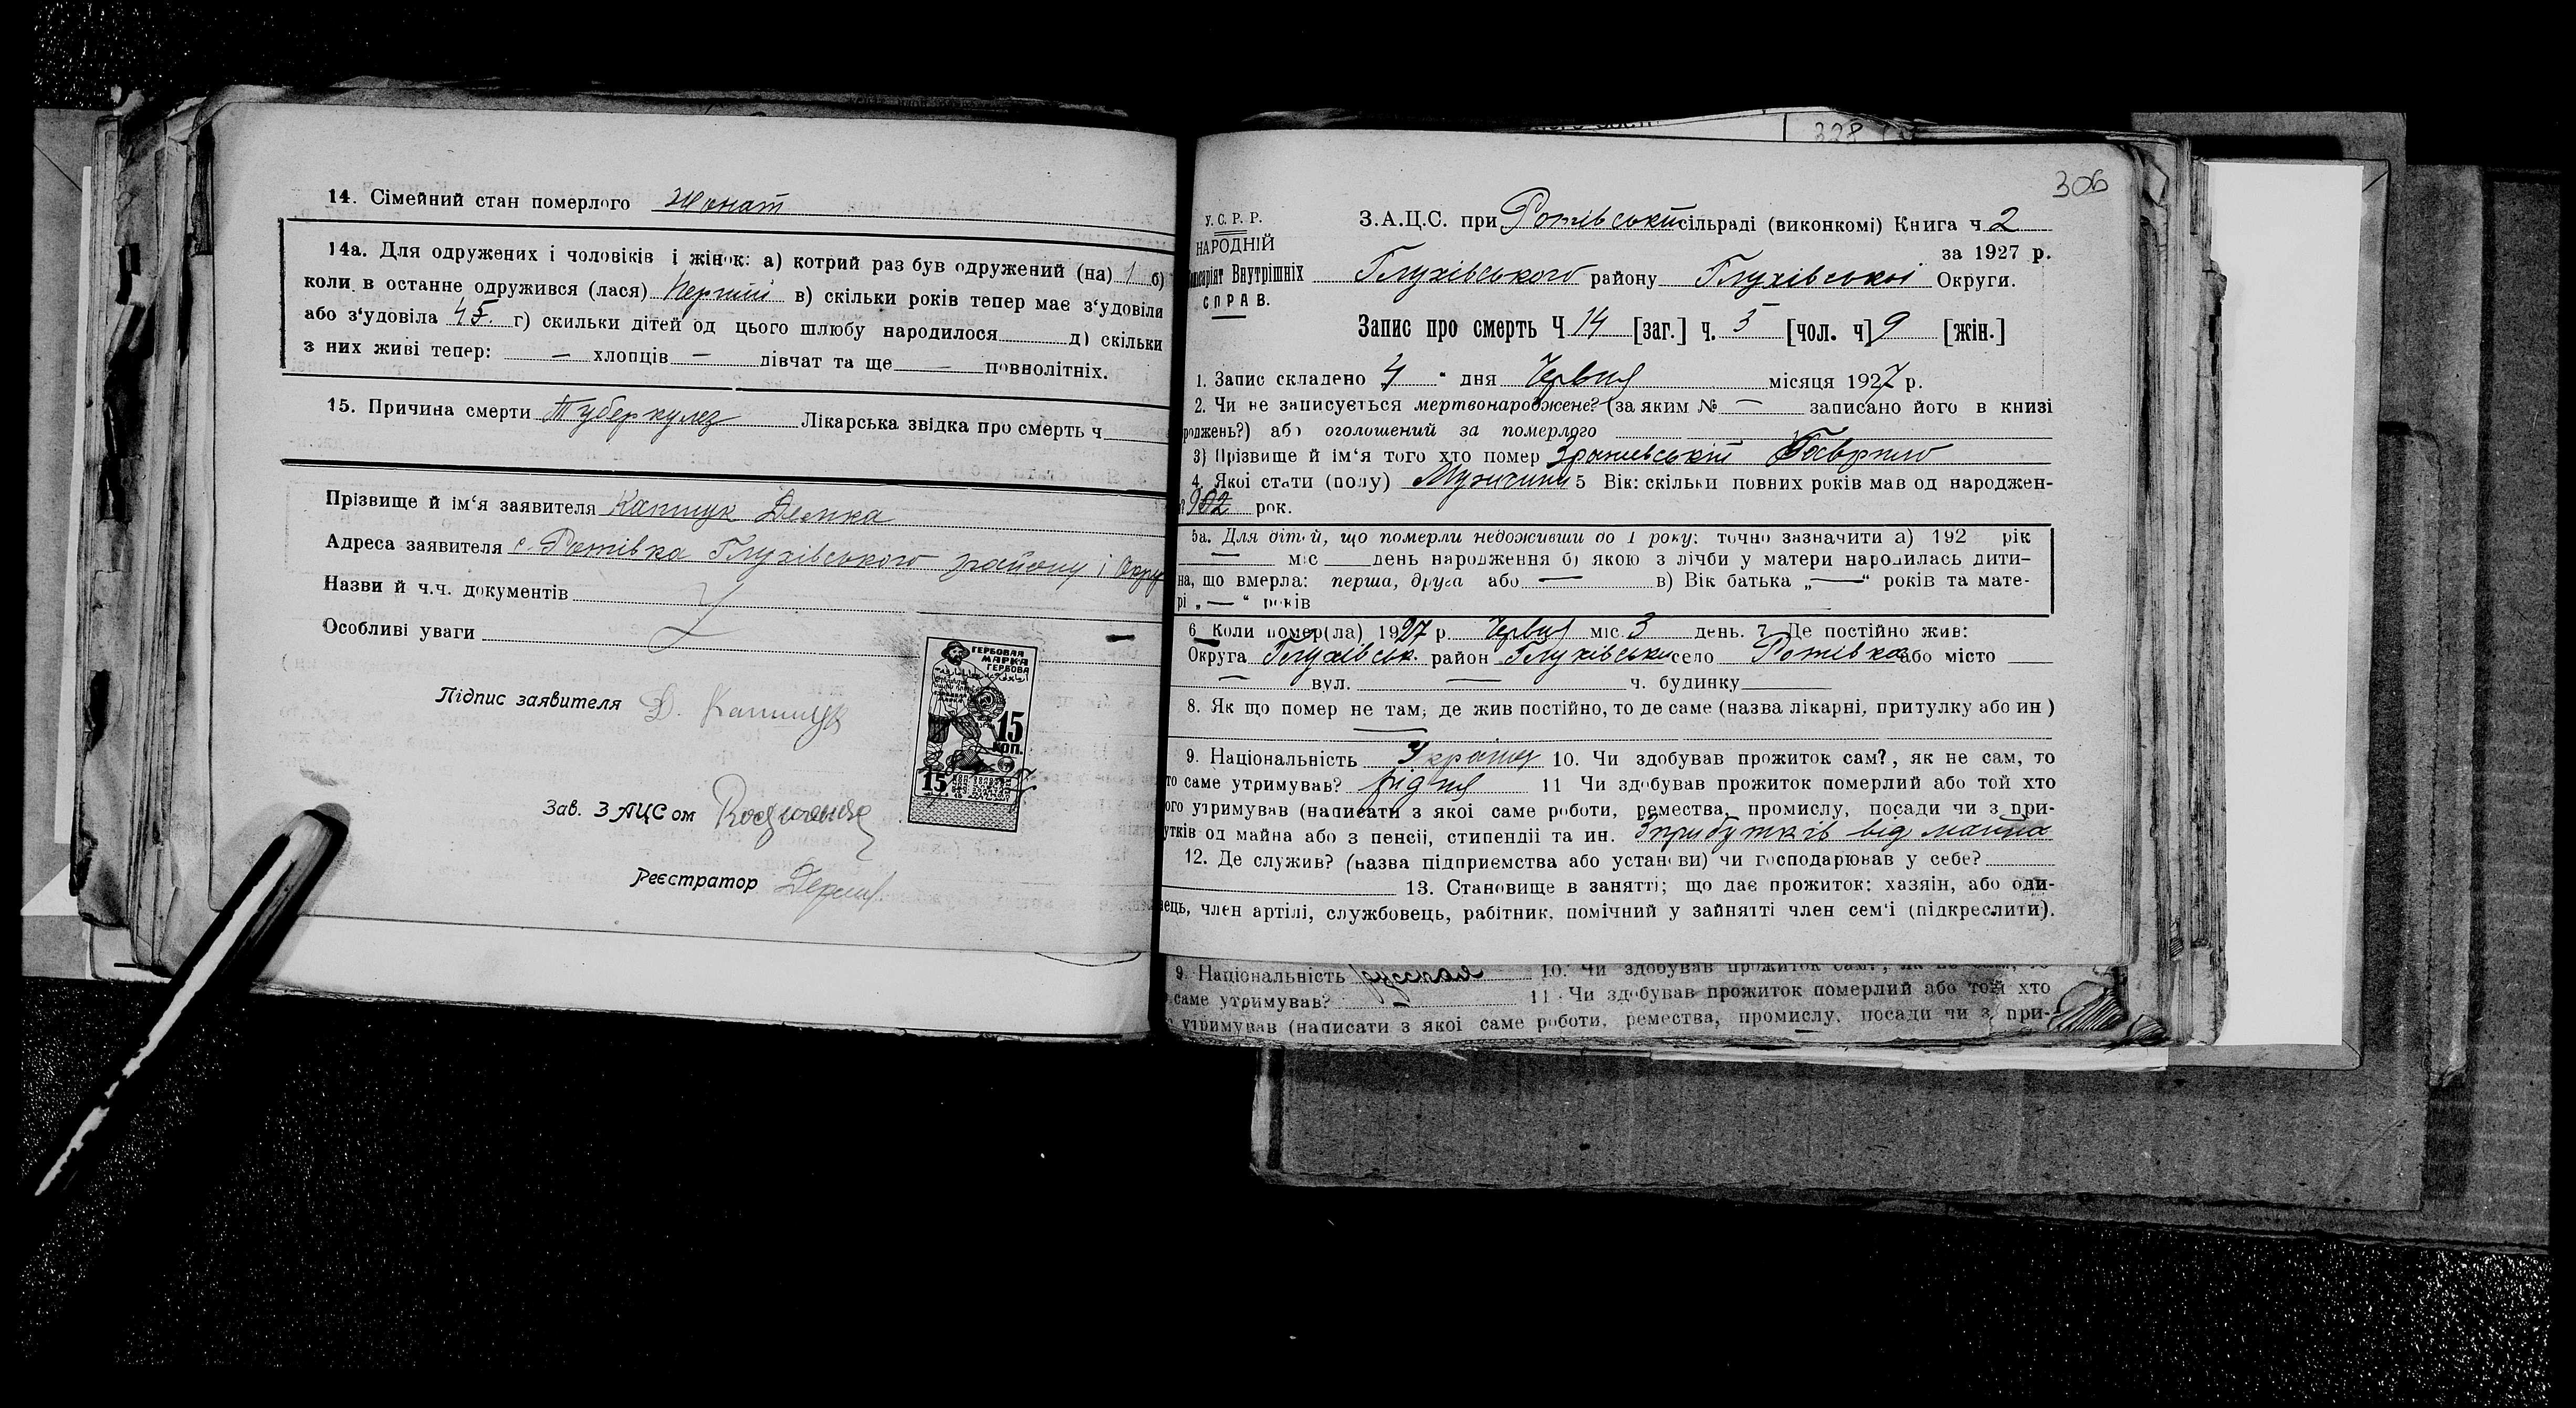 14. Сімейний стан померлого Жонат
14а. Для одружених і чоловіків і жінок: а) котрий раз був одружений (на) 1 б)
коли в останне одружився (лася) Перший в) скільки років тепер має з‘удовіли
або з‘удовіла 45. г) скильки дітей од цього шлюбу народилося д) скільки
з них живі тепер: — хлопців — дівчат та ще — повнолітніх.
15. Причина смерти Туберкулез Лікарська звідка про смерть ч
Прізвище й ім‘я заявителя Капшук Демка
Адреса заявителя с. Ротівка Глухівського району і Окру
Назви й ч.ч. документів
Особливі уваги —
ГЕРБОВАЯ
МАРКА
ГЕРБОВА
15
КОП.
15
Підпис заявителя Д. Капшук
Зав. ЗАЦСом
Реєстратор
328
306
У.С.Р.Р.
НАРОДНІЙ
Внутрішніх
СПРАВ.
З.А.Ц.С. при Ротівській сільраді (виконкомі) Книга ч 2
за 1927 р.
Глухівського району Глухівської Округи.
Запис про смерть Ч 14 [заг.] ч. 5 [чол. ч] 9 [жін.]
1. Запис складено 4 “ дня Червня місяця 1927 р.
2. Чи не записується мертвонароджене? (за яким № — записано його в книзі
роджень?) або оголошений за померлого
3) Прізвище й ім‘я того хто помер Гаврило
4. Якої стати (полу) Мужчини 5 Вік: скільки повних років мав од народжен-
902 рок.
5а. Для дітей, що померли недоживши до 1 року: точно зазначити а) 192 рік
— міс день народження б) якою з лічби у матери народилась дити-
на, що вмерла: перша, друга або — в) Вік батька „—“ років та мате-
рі „—“ років
6 Коли помер(ла) 1927 р. Червня міс. 3 день. 7 Де постійно жив:
Округа Глухівськ. район Глухівськи село Ротівка або місто —
— вул. — ч. будинку
8. Як що помер не там, де жив постійно, то де саме (назва лікарні, притулку або ин )
—
9. Національність Украінец 10. Чи здобував прожиток сам?, як не сам, то
то саме утримував? рідня 11 Чи здобував прожиток померлий або той хто
ого утримував (написати з якої саме роботи, ремества, промислу, посади чи з при-
утків од майна або з пенсії, стипендії та ин. Зприбутків від майна
12. Де служив? (назва підприємства або установи) чи господарював у себе?
13. Становище в занятті; що дає прожиток: хазяін, або оди-
нець, член артілі, службовець, рабітник, помічний у зайнятті член сем‘ї (підкреслити).
9. Національність русская 10. Чи здобував прожиток сам?, як не сам, то
саме утримував? — 11 Чи здобував прожиток померлий або той хто
утримував (написати з якої саме роботи, ремества, промислу, посади чи з при-